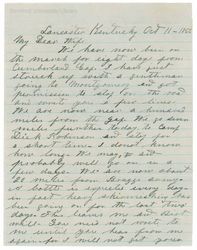 Lancaster Kentucky Oct 11 - 1862
My Dear Wife
We have now been on
the march for eight days from
Cumberland Gap. I have just
struck up with a gentleman
going to Montgomery and got
permission to stop on the road
and write you a few lines.
We are now near a hundred
miles from the Gap. We go seven
miles further today to Camp
Dick Robinson and stay for
a short time I don't know
how long. We may go
probably will go on in a
few days. We are now about
miles from Braggs army
A battle is expected every day
in fact heavy skirmishing has
been going on for the last two
days. The leaves are and
well. You need not write to
me until you hear from me
again for I will not get yours